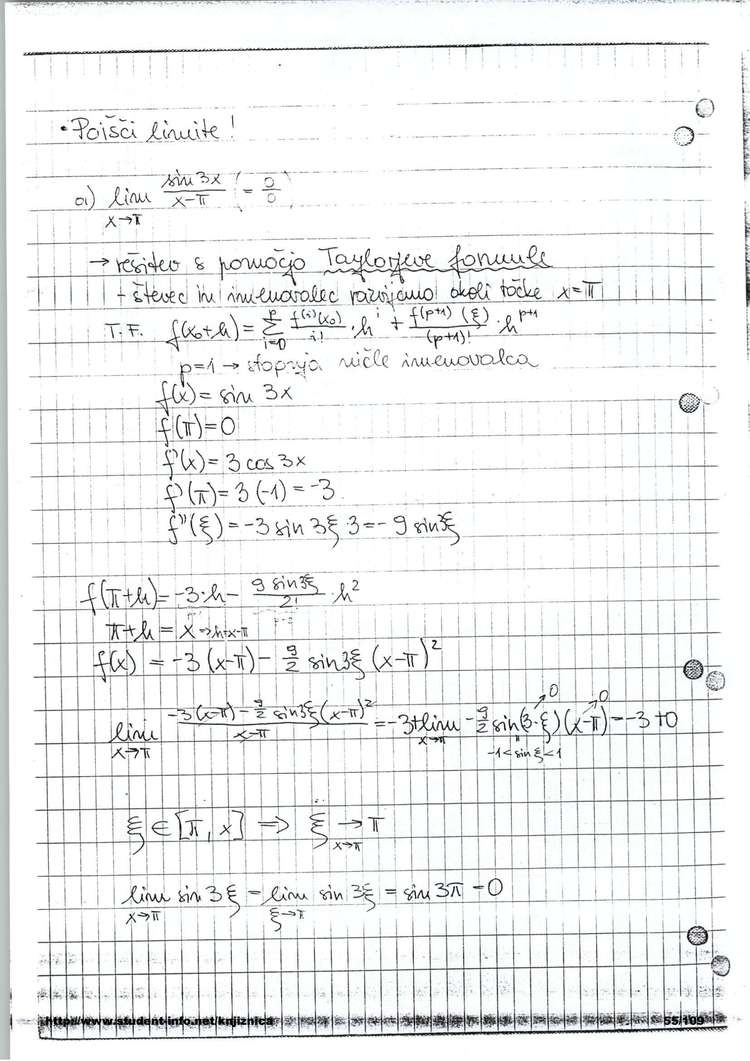 • Poišči limite!
a) lim x→π sin 3x / x-π (= 0/0)
→ rešitev s pomočjo Taylorjeve formule
- števec in imenovalec razvijemo okoli točke x=π
T.F. f(x₀+h) = Σ i=0 p f⁽ⁱ⁾(x₀)/i! · hⁱ + f(p+1)(ξ)/(p+1)! · h^(p+1)
p=1 → stopnja ničle imenovalca
f(x) = sin 3x
f(π)=0
f'(x) = 3 cos 3x
f'(π) = 3(-1) = -3
f''(ξ) = -3 sin 3ξ · 3 = -9 sin 3ξ
f(π+h) = -3·h - 9 sin 3ξ / 2! · h²
π+h = x → h=x-π
f(x) = -3(x-π) - 9/2 sin 3ξ (x-π)²
lim x→π -3(x-π) - 9/2 sin 3ξ (x-π)² / x-π = -3 + lim x→π - 9/2 sin(3·ξ) → 0 (x-π) → 0 = -3+0
-1 < sin ξ < 1
ξ ∈ [π, x] ⇒ ξ → π x→π
lim x→π sin 3ξ = lim ξ→π sin 3ξ = sin 3π = 0
http://www.student-info.net/knjiznica 55/109